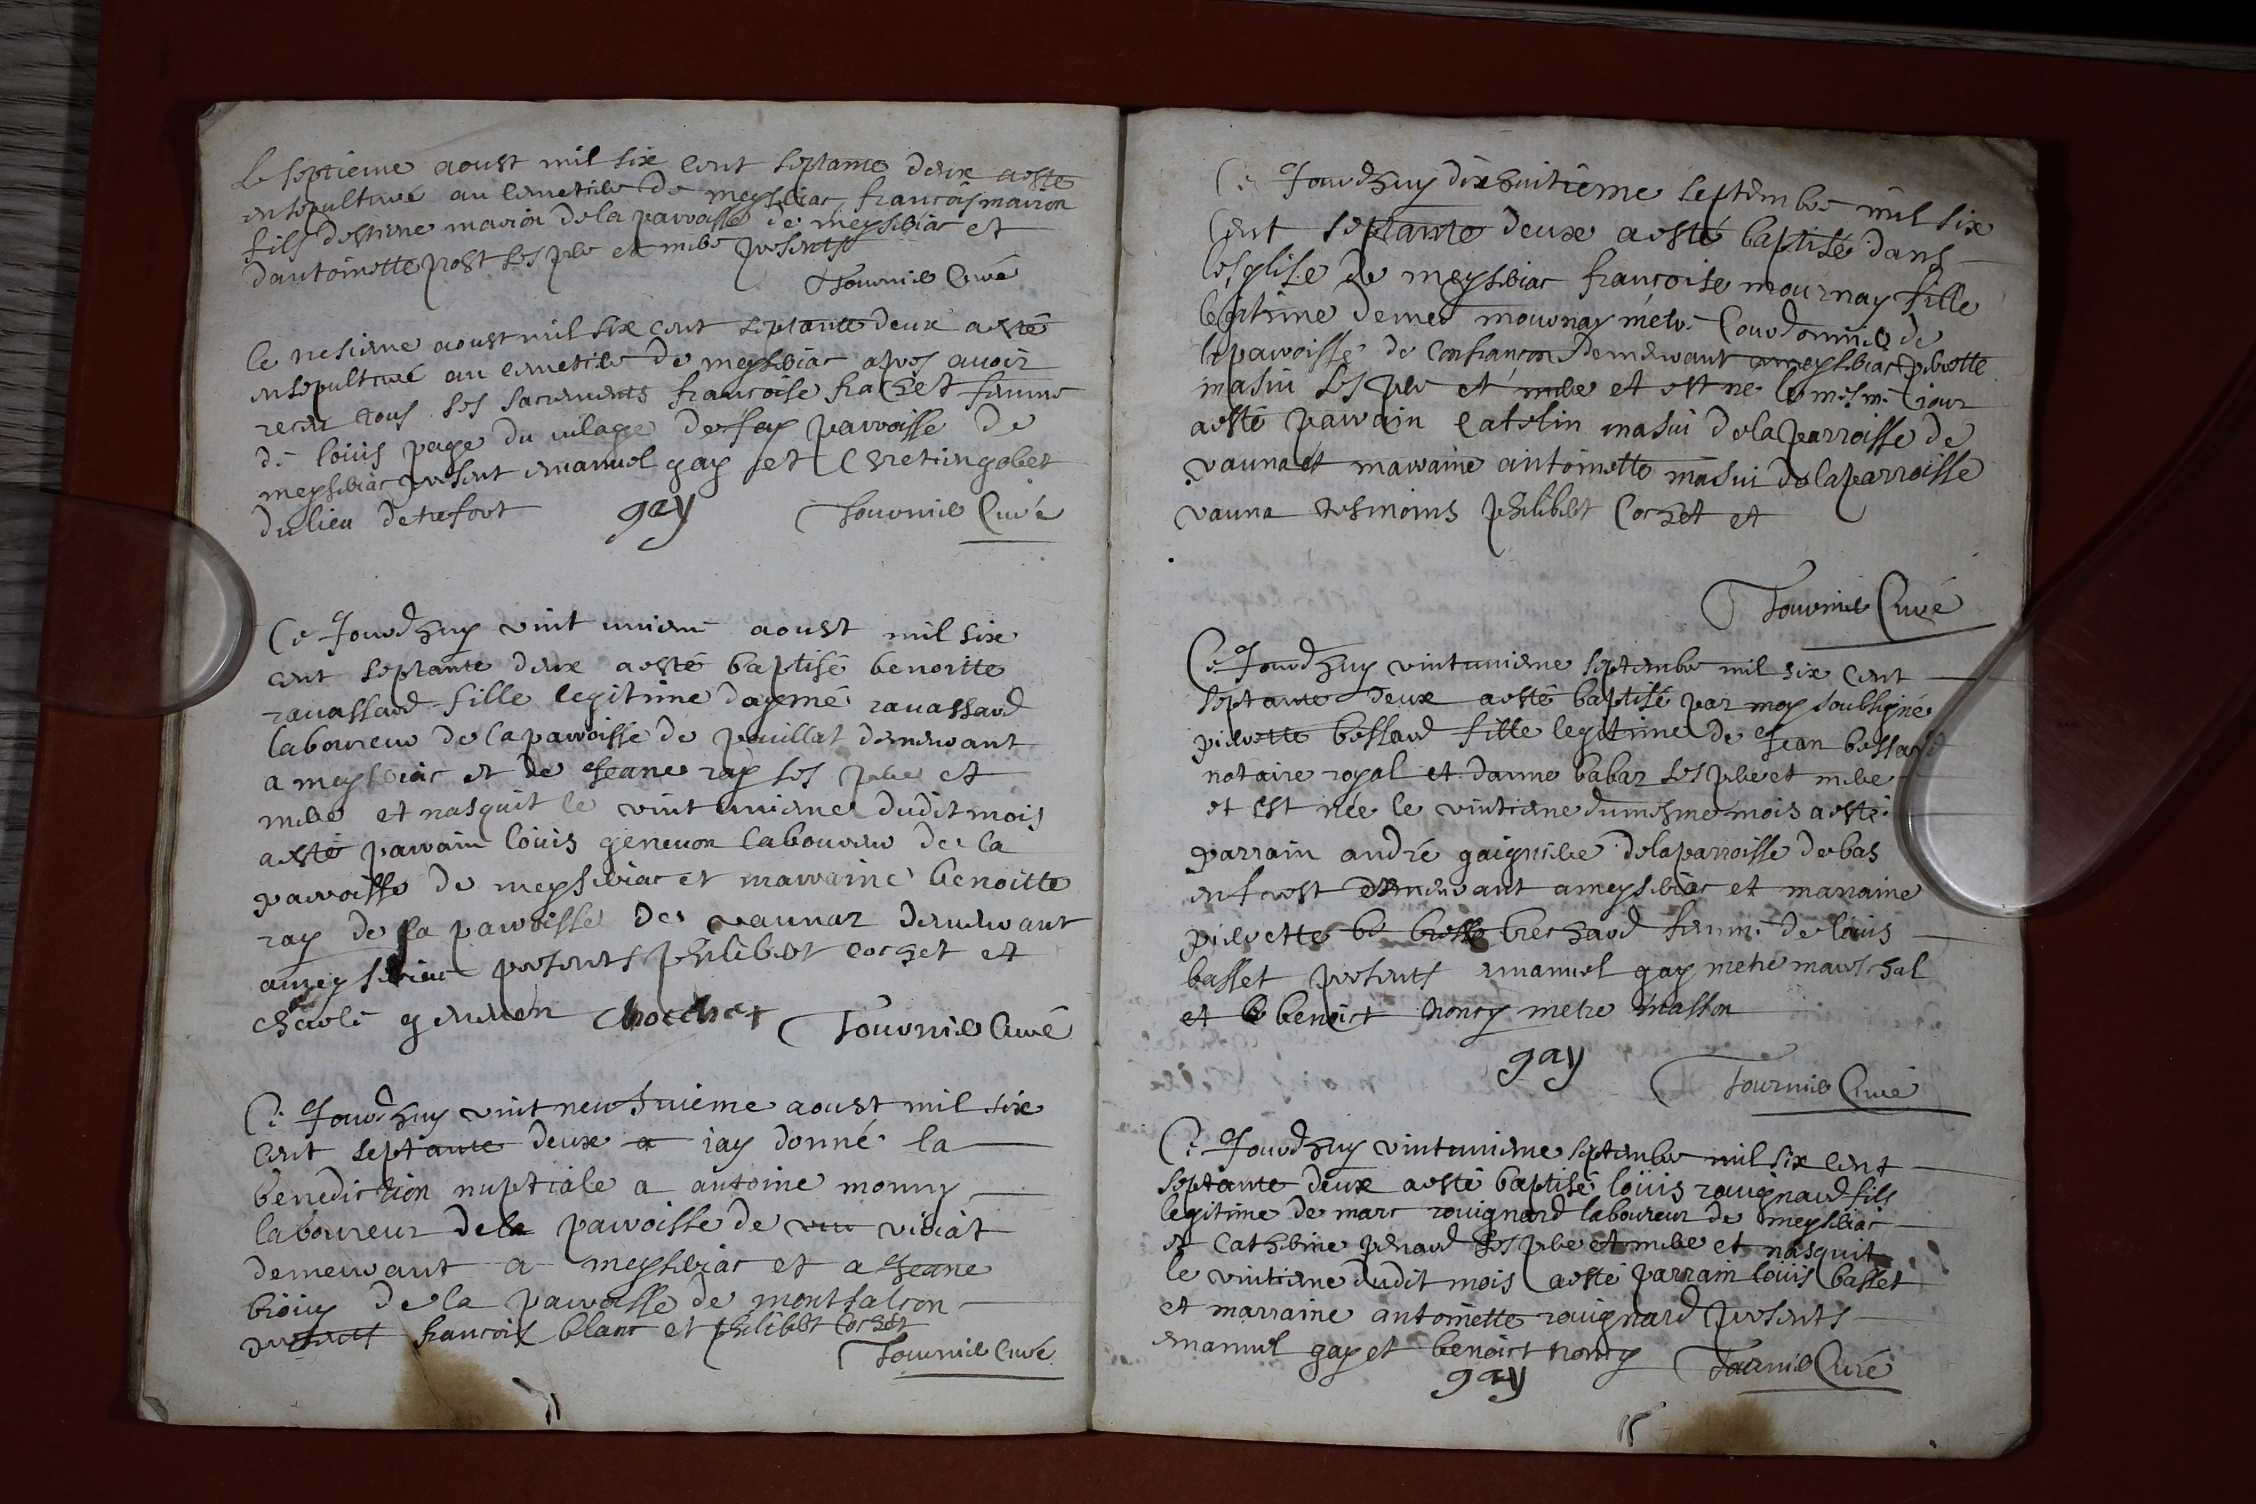 Le septieme aoust mil six cent septante deux a esté
ensepulturé au cemetiere de meyseriac françois marion
fils destiene marion de la parroisse de meyseriac et
dantoinette post ses pere et mere presents
Tournier Curé
Le nesieme aoust mil six cent septante deux a esté
ensepulturé au cemetiere de meyseriac apres avoir
receu tous ses sacrements francoise frachet femme
de louis page du vilage de fay parroisse de
meyseriac present emanuel gay et
du lieu de trefort gay Tournier Curé
Ce Jourdhuy vint unieme aoust mil six
cent septante deux a esté baptisé benoitte
ravassard fille legitime daymé ravassard
laboureur de la parroisse de pouillat demeurant
a meyseriac et de Jeane ray ses pere et
mere et nasquit le vint unieme dudit mois
a esté parrain louis genevon laboureur de la
parroisse de meyseriac et marraine benoitte
ray de la parroisse de vaunaz demeurant
a meyseriac presents philibert cochet et
charle genevon Chochet Tournier Curé
Ce Jourdhuy vint neuvieme aoust mil six
cent septante deux a iay donné la
benediction nuptiale a antoine monny
laboureur de la parroisse de viriat
demeurant a meyseriac et a Jeane
de la parroisse de montfalcon
presents francois blanc et philibert Cochet
Tournier Curé
Ce Jourdhuy dixhuitieme septembre mil six
Cent septante deux a esté baptisé dans
lesglise de meyseriac françoise mournay fille
legitime de mournay metre Courdonnier de
la parroisse de Confrançon demeurant a meyseriac pierrette
masui ses pere et mere et est ne le mesme jour
a esté parrain Catelin masui de la parroisse de
vauna et marraine antoinette masui de la parroisse
vauna tesmoins philibert Cochet et
Tournier Curé
Ce Jourdhuy vintunieme septembre mil six cent
septante deux a esté baptisé par moy soubsigné
pierrette bessard fille legitime de Jean bessard
notaire royal et danne babaz ses pere et mere
et est née le vintieme du mesme mois a esté
parrain andré gaigniere de la parroisse de bas
en forest demeurant a meyseriac et marraine
pierrette brechard femme de louis
basset presents emanuel gay metre mareschal
et benoict noncy metre masson
gay Tournier Curé
Ce Jourdhuy vintunieme septembre mil six cent
septante deux a esté baptisé louis rouignard fils
legitime de marc rouignard laboureur de meyseriac
et Catherine penard ses pere et mere et nasquit
le vintieme dudit mois a esté parrain louis basset
et marraine antoinette rouignard presents
emanuel gay et benoict noncy Tournier Curé
gay